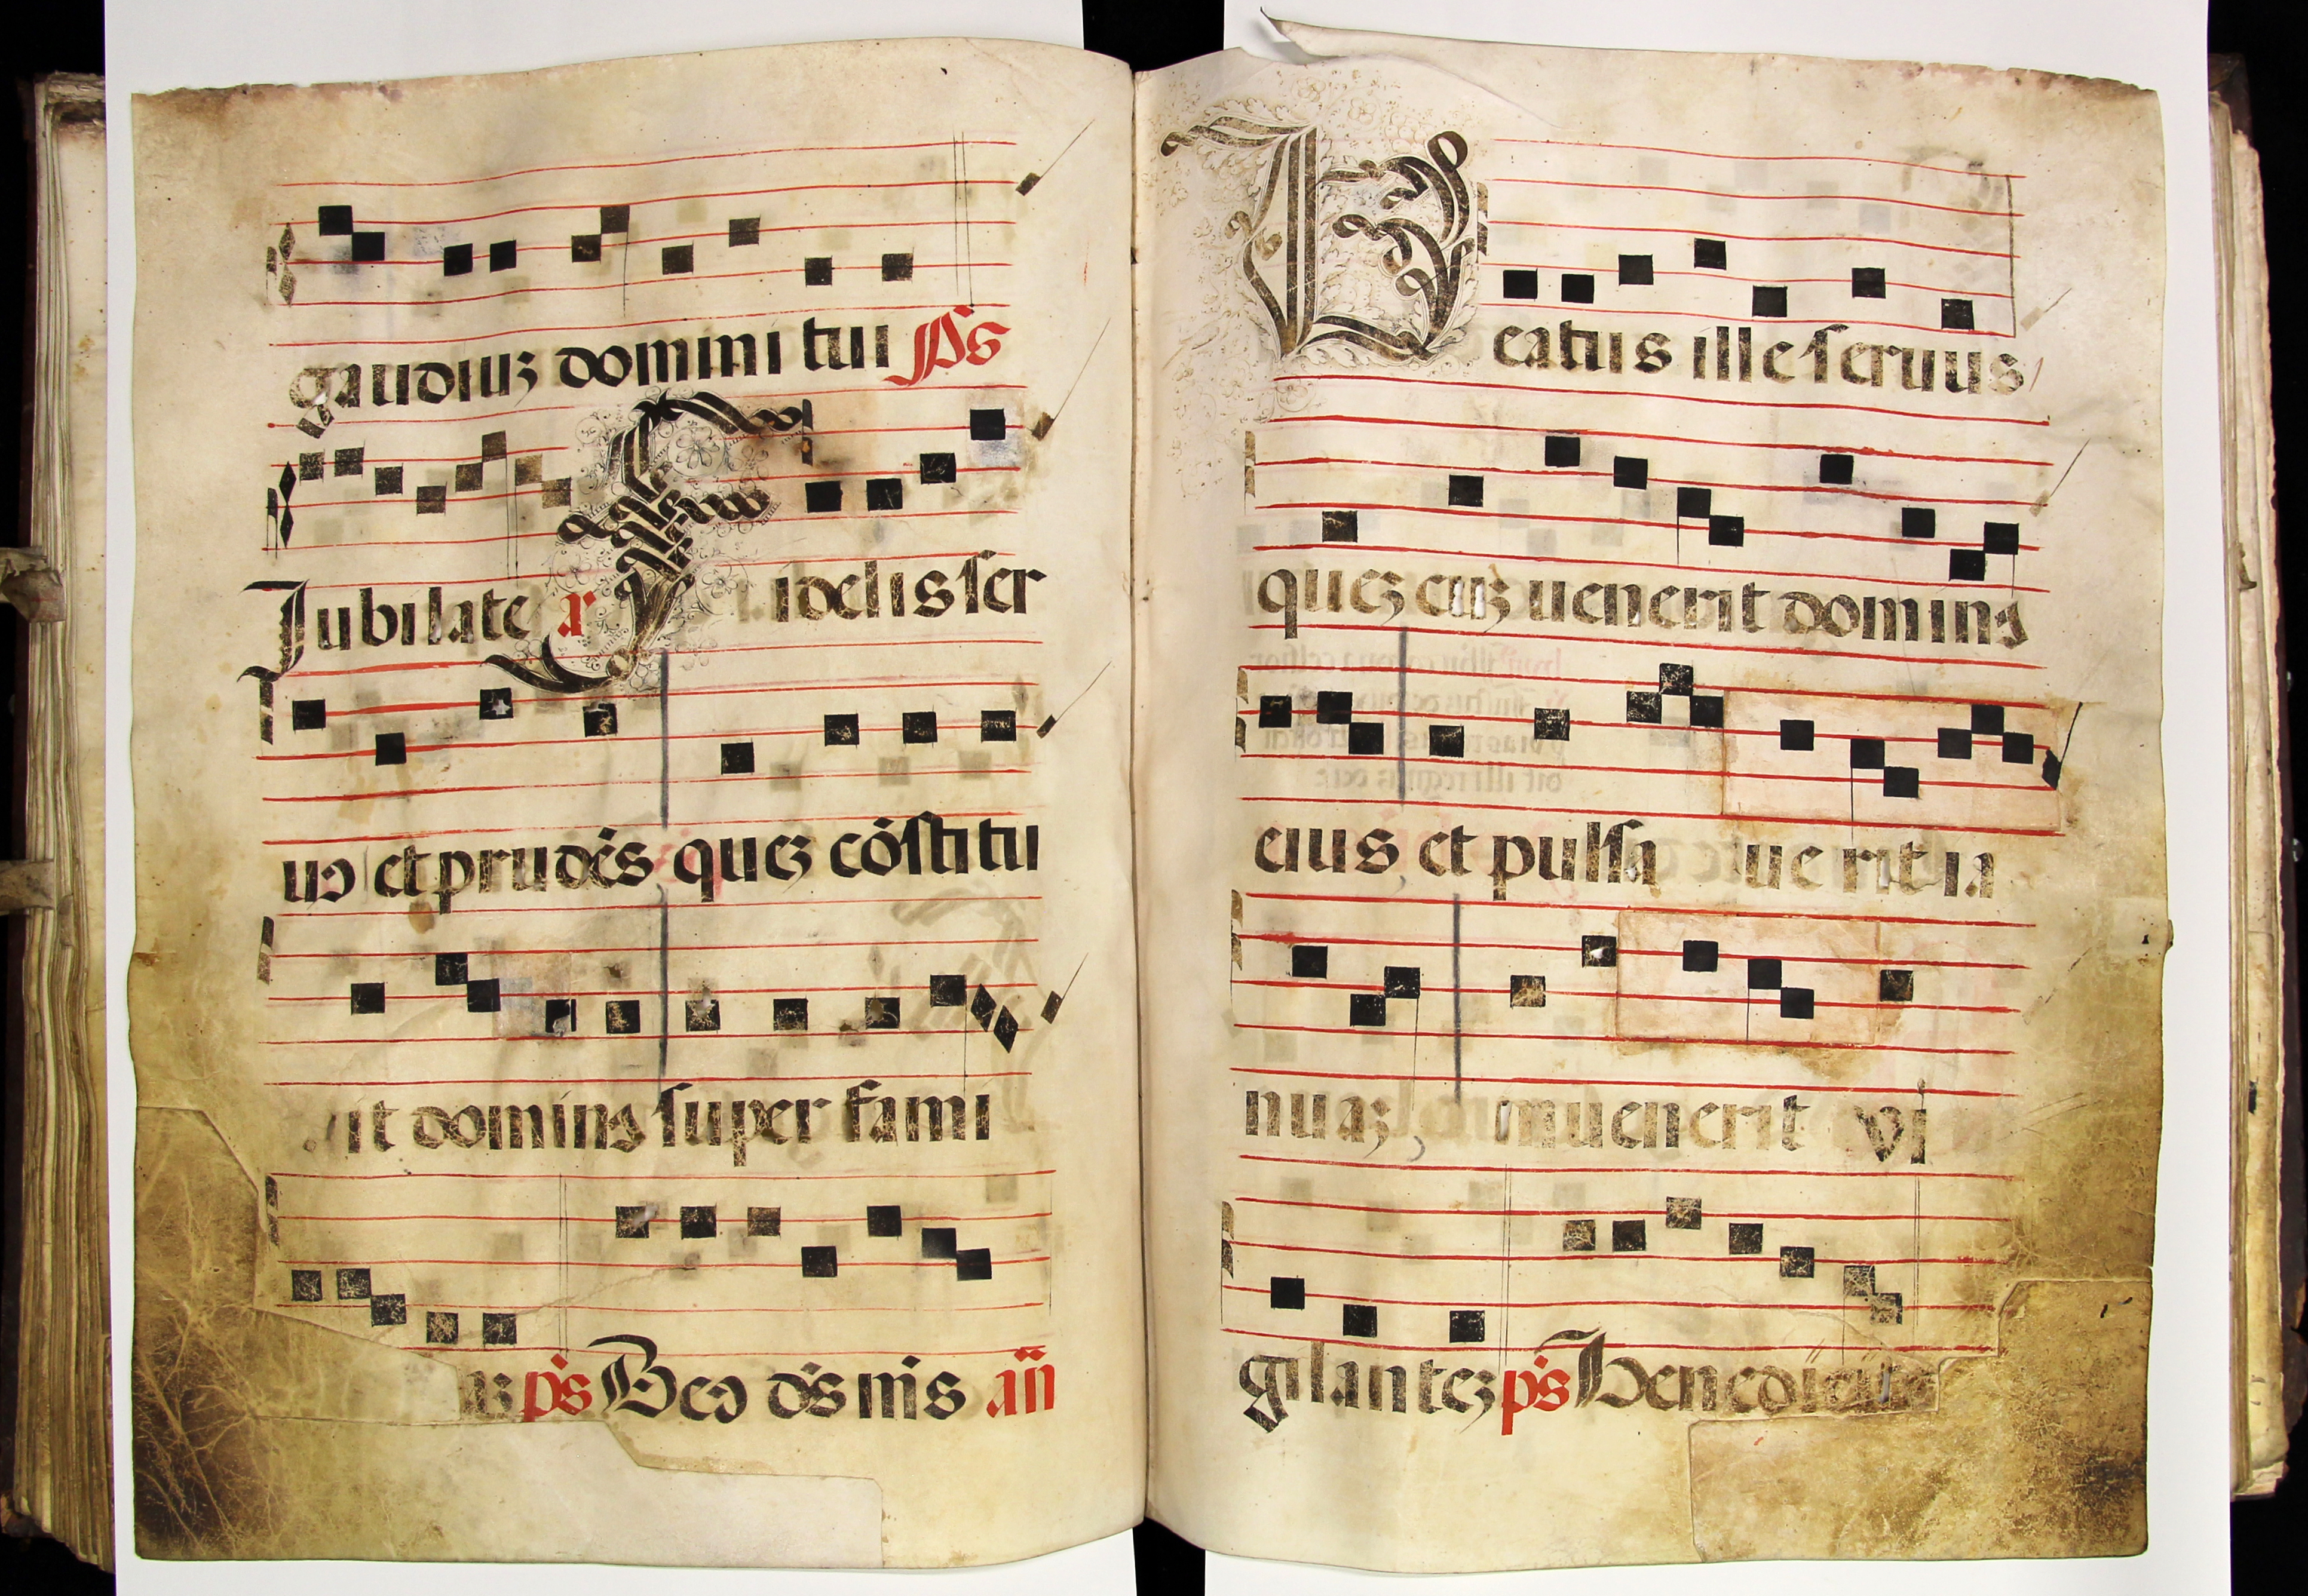 gaudiuz domini tui p̄s
Jubilate a Fidelis ser
uo et prudēs quez cōstitu
it dominꝰ super fami
az ps Beo ds nis an̄
Beatus ille seruus
quez cuz uenerit dominꝰ
eius et pulsa uerit ia
nuaz inuenerit vi
gilantez ps benedicite